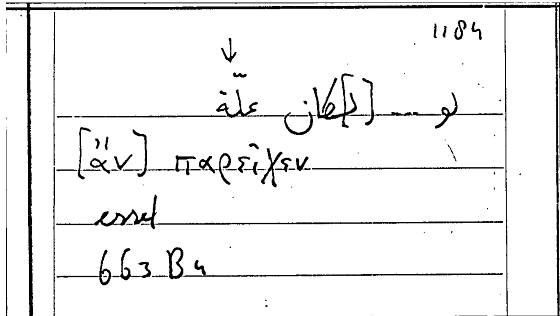 1184
↓
لو ... [لـ]كان علّة
[ἂν] παρεῖχεν
essel
663 B 4